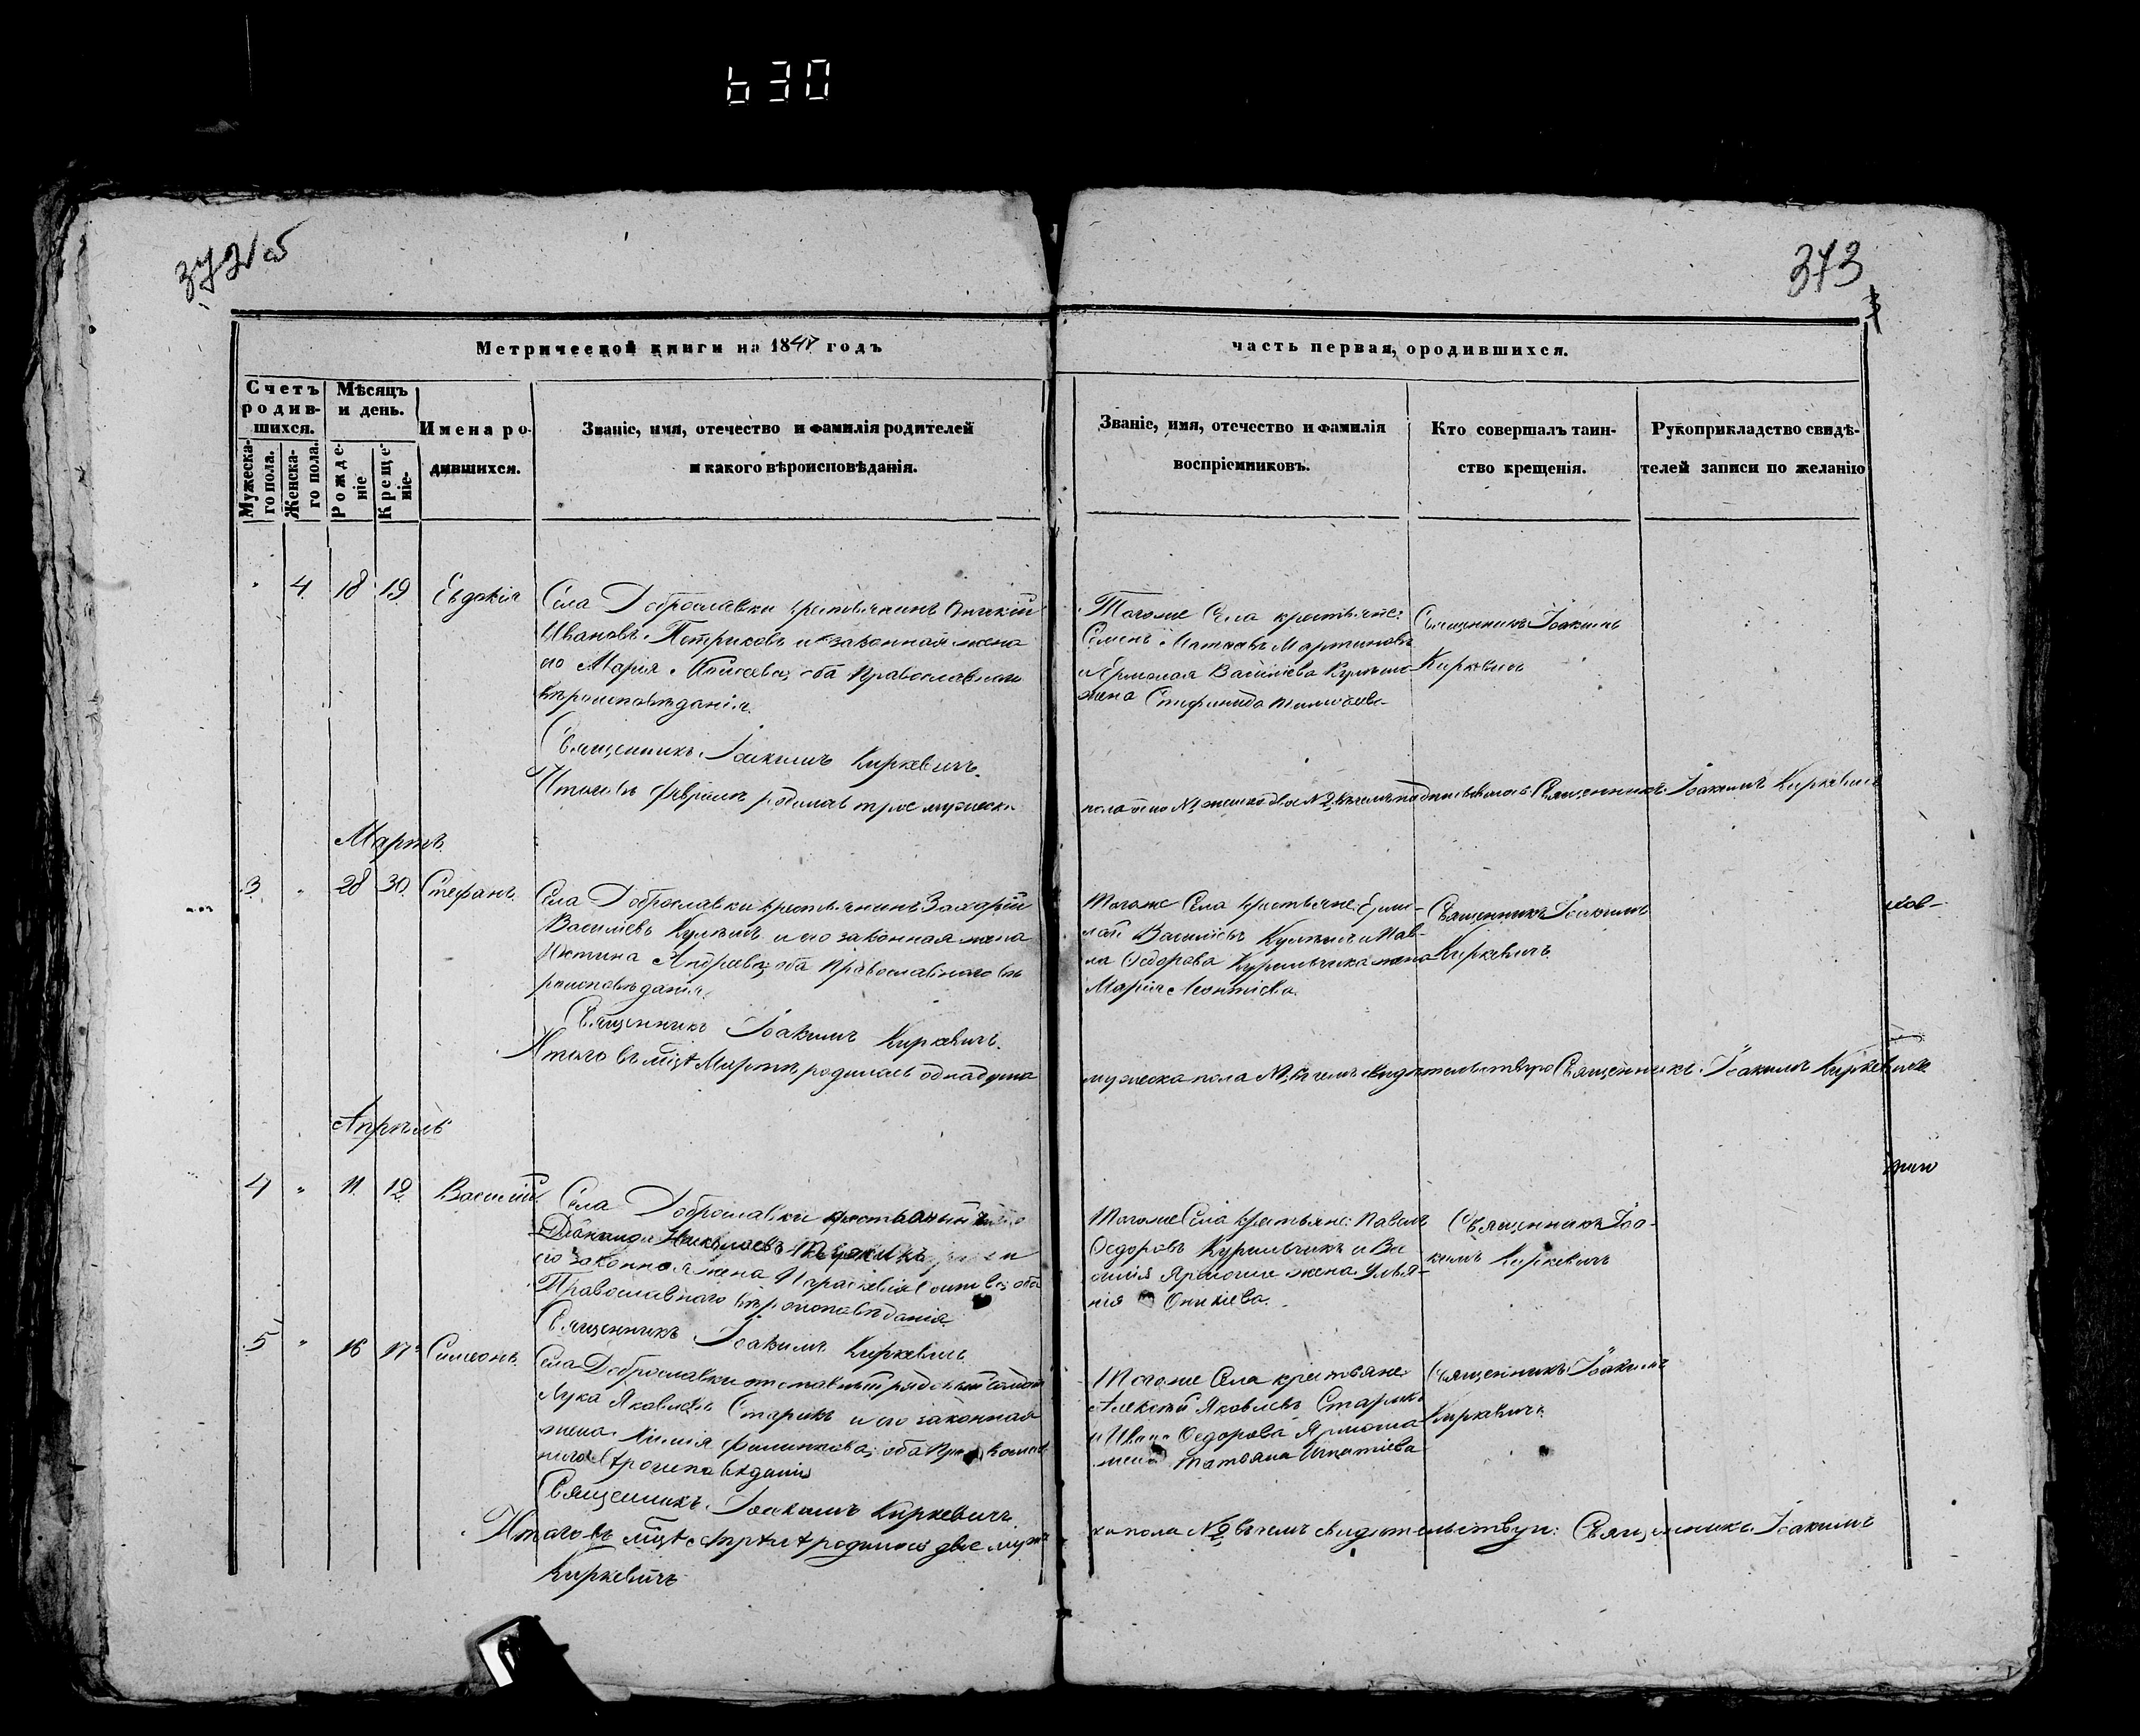 630
372об
373
Метрической книги на 184 годъ
часть первая, о родившихся.
Счетъ родив-
шихся.
Мужеска-
го пола.
Женска-
го пола.
Мѣсяцъ
и день.
Рожде-
ніе
Креще-
ніе.
Имена ро-
дившихся.
Званіе, имя, отечество и фамилія родителей
и какого вѣроисповѣданія.
Званіе, имя, отечество и фамилія
воспріемниковъ.
Кто совершалъ таин-
ство крещенія.
Рукоприкладство свидѣ-
телей записи по желанію
4 18 19 Евдокія
Села Доброславки крестьянинъ
Ивановъ Петриковъ и законная жена
его Марія оба Православнаго
вѣроисповѣданія.
Священникъ Іоакимъ Киркевичъ.
Тогоже Села крестьяне:
Семенъ Матѳѣевъ Мартиновъ
и Ярмолая Василіева
жена Стефанида
Священникъ Іоакимъ
Киркевичъ
Итого въ Февралѣ родилось трое мужеска
пола одно №1 женска двое №2 въ чемъ подписываюсь Священникъ Іоакимъ Киркевичъ
Мартъ
3 28 30 Стефанъ.
Села Доброславки крестьянинъ Захарій
Василіевъ Кулешъ и его законная жена
Устина Андреева, оба Православнаго вѣ
роисповѣданія.
Священникъ Іоакимъ Киркевичъ.
Тогоже Села крестьяне: Ермо-
лай Василіевъ Кулешъ и Пав-
ла Ѳедорова Курильчика жена
Марія Леонтіева.
Священникъ Іоакимъ
Киркевичъ.
Итого въ мцѣ Мартѣ родилась одна душа
мужеска пола №1, въ чемъ свидѣтельствую Священникъ Іоакимъ Киркевичъ
Апрѣль
4 11 12 Василій.
Села Доброславки крестьянинъ
Николаевъ и
его законная жена Параскевія оба
Православнаго вѣроисповѣданія
Священникъ Іоакимъ Киркевичъ
Тогоже Села крестьяне: Павелъ
Ѳедоровъ Курильчикъ и Ва
силія Ярмоша жена Улья-
нія Оникіева.
Священникъ Іоа-
кимъ Киркевичъ
5 16 17 Симеонъ.
Села Доброславки отставный рядовый солдатъ
Лука Яковлевъ Старикъ и его законная
жена оба Православ
наго вѣроисповѣданія
Священникъ Іоакимъ Киркевичъ
Тогоже Села крестьяне
Алексѣй Яковлевъ Старикъ
и Ивана Ѳедорова Ярмоша
жена Татьяна Игнатіева
Священникъ Іоакимъ
Киркевичъ
Итого въ мцѣ Апрѣлѣ родилось двое муже
ка пола №2 въ чемъ свидѣтельствую: Священникъ Іоакимъ
Киркевичъ